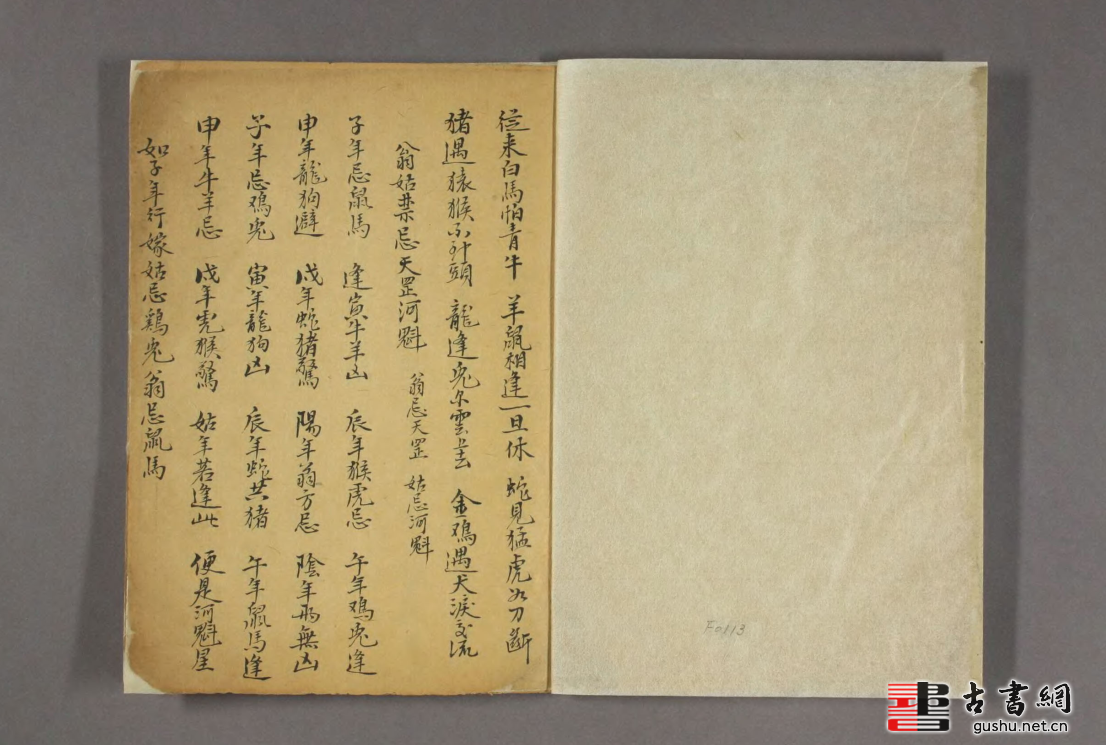 從来白馬怕青牛 羊鼠相逢一旦休 蛇見猛虎如刀斷
猪遇猿猴不到頭 龍逢兎 雲去 金鳮遇犬淚交流
翁姑禁忌天罡河魁 翁忌天罡 姑忌河魁
子年忌鼠馬 逢寅牛羊凶 辰年猴虎忌 午年鳮兎逢
申年龍狗避 戌年蛇猪驚 陽年翁方忌 陰年 無凶
子年忌鳮兎 寅年龍狗凶 辰年蛇共猪 午年鼠馬逢
申年牛羊忌 戌年虎猴驚 姑年若逢此 便是河魁星
如子年行嫁姑忌鷄兎翁忌鼠馬
F0113
古書網
gushu.net.cn